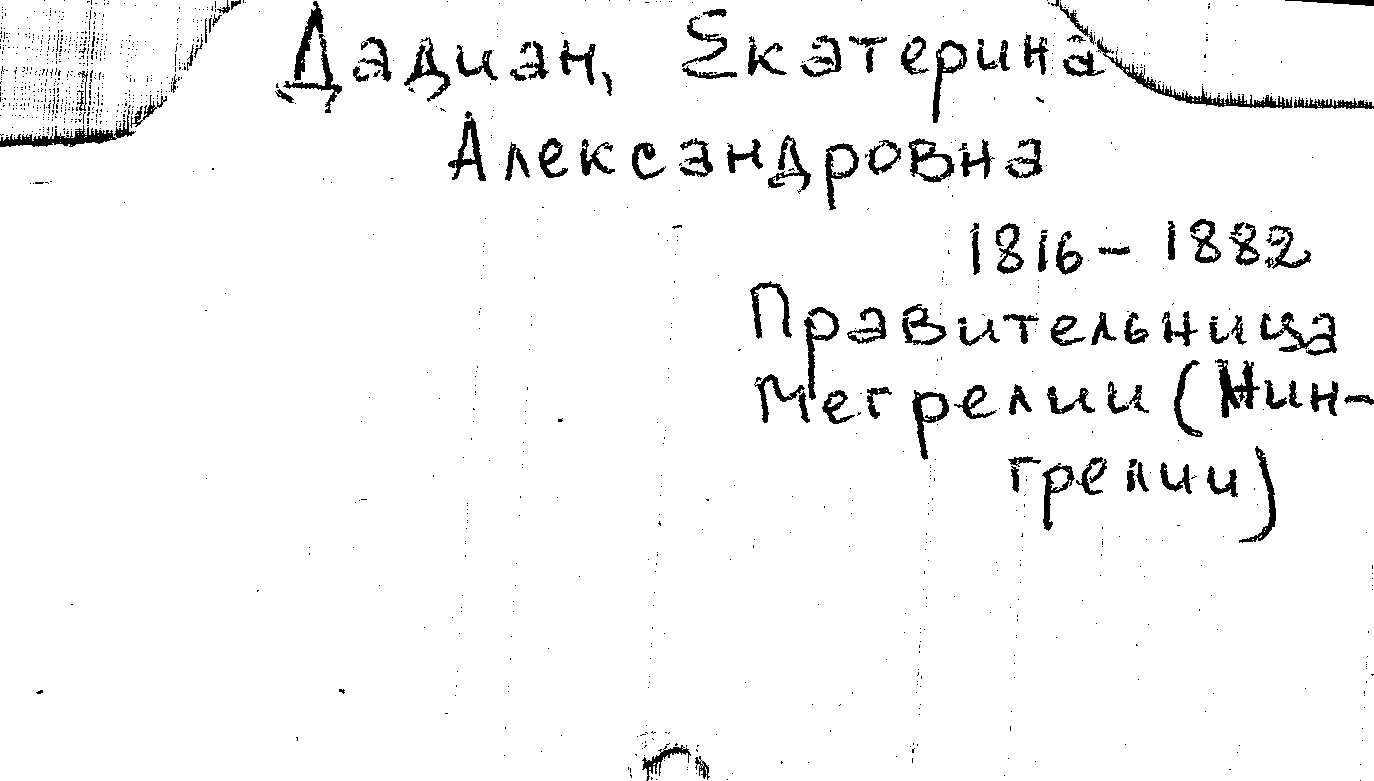 Дадиан, Екатерина
Александровна
1816 - 1882
Правительница
Мегрелии (Мин-
грелии)